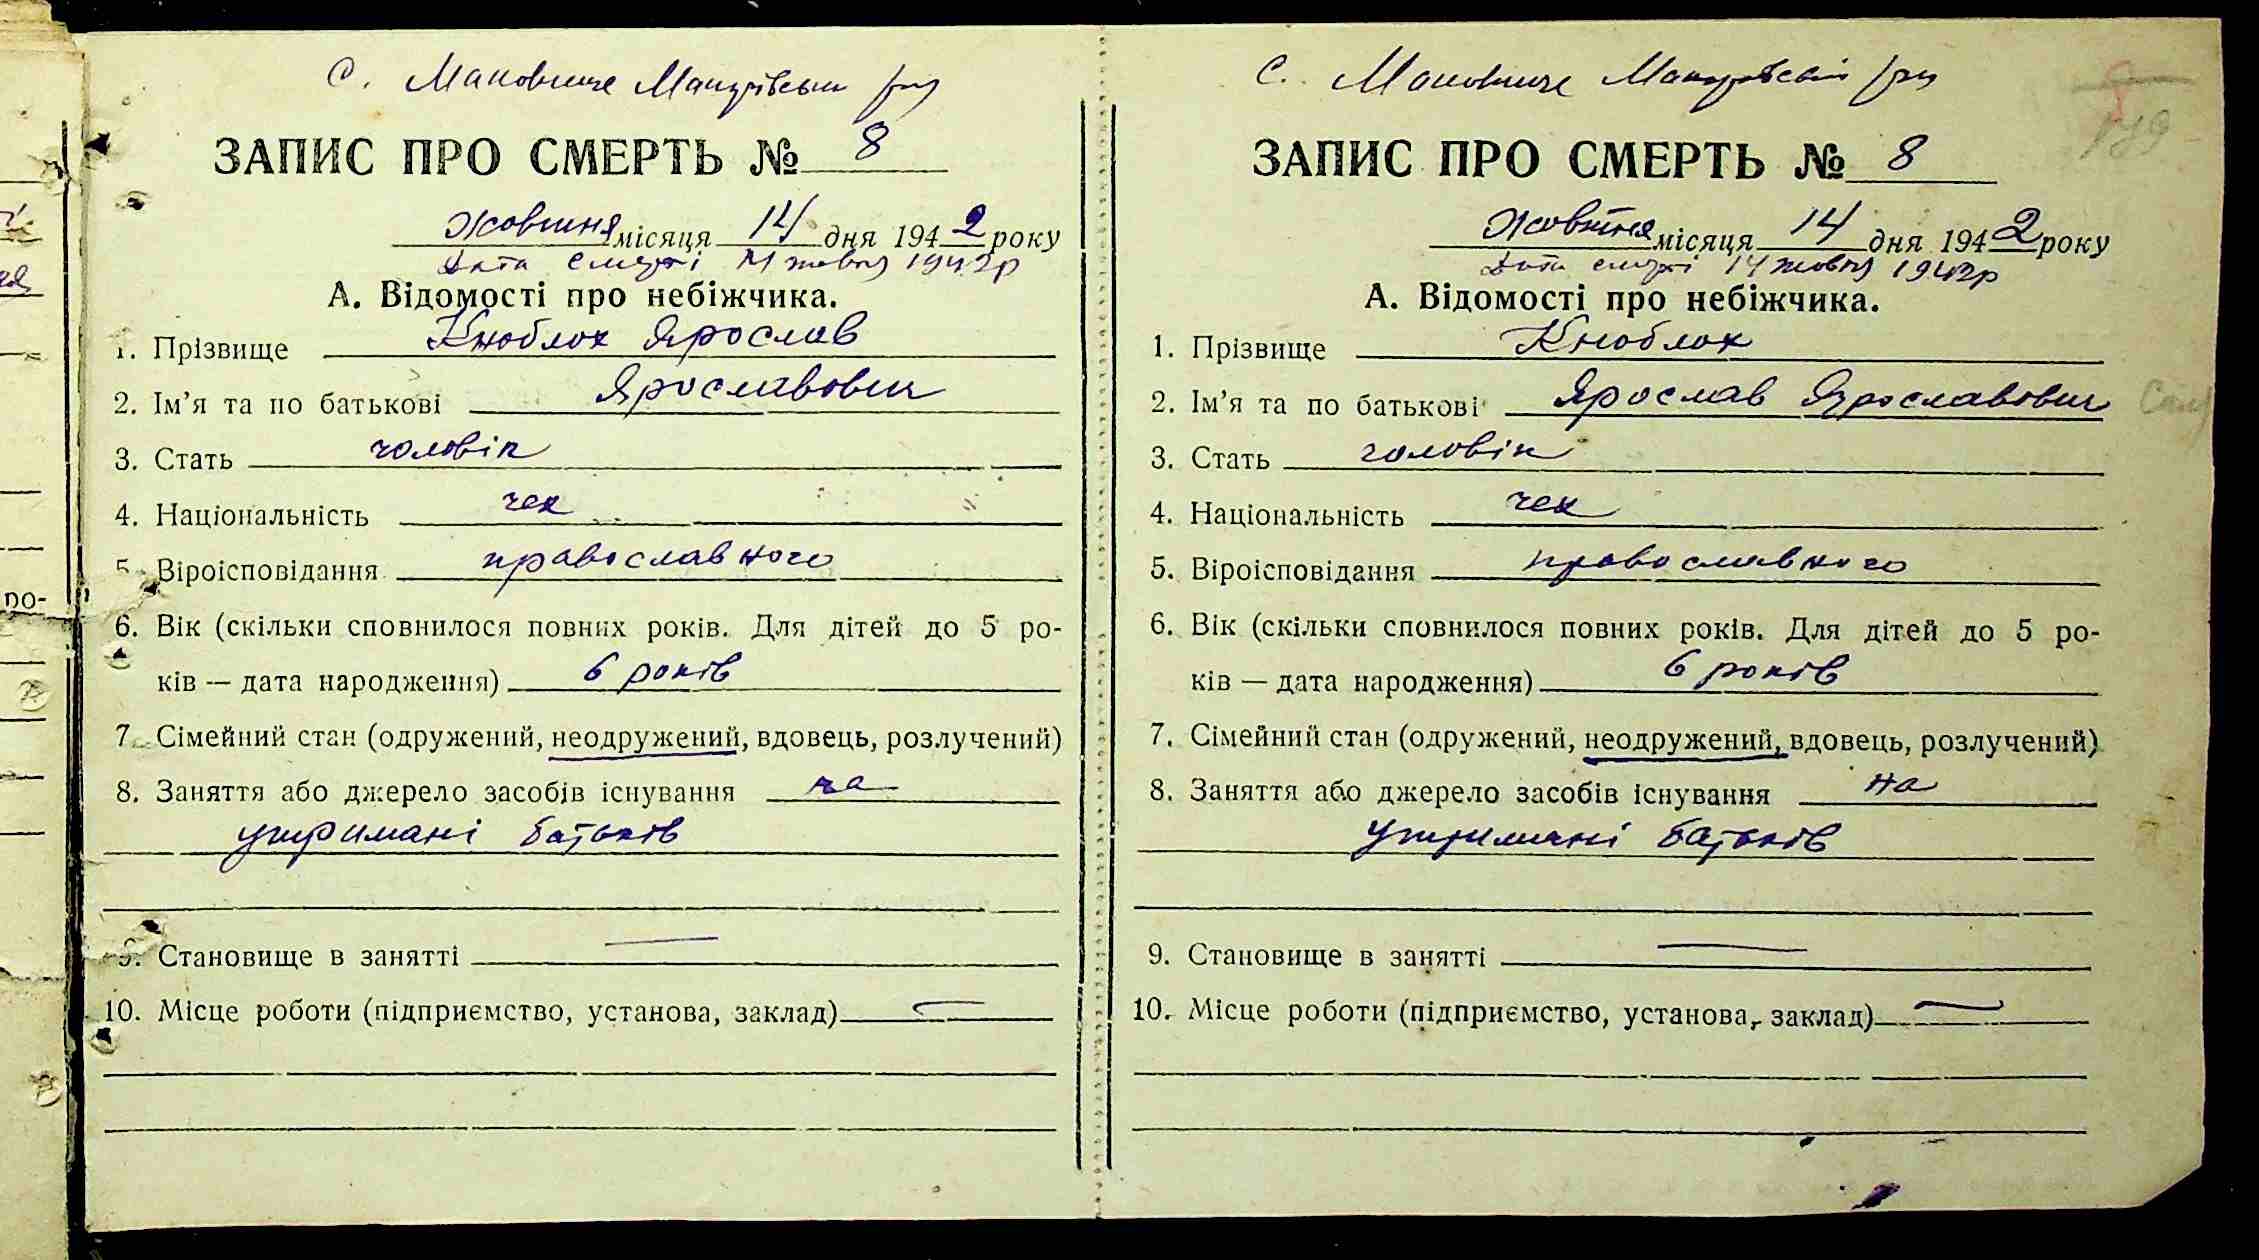 С. Маковище Макарівськ р-ну
ЗАПИС ПРО СМЕРТЬ № 8
Жовтня місяця 14 дня 1942 року
Дата смерті 14 жовтня 1942р
А. Відомості про небіжчика.
1. Прізвище Кноблох Ярослав
2. Ім’я та по батькові Ярославович
3. Стать чоловік
4. Національність чех
5. Віроісповідання православного
6. Вік (скільки сповнилося повних років. Для дітей до 5 ро-
ків — дата народження) 6 років
7. Сімейний стан (одружений, неодружений, вдовець, розлучений)
8. Заняття або джерело засобів існування на
утримані батьків
9. Становище в занятті —
10. Місце роботи (підприємство, установа, заклад) —
С. Маковище Макарівський р-ну
ЗАПИС ПРО СМЕРТЬ № 8
Жовтня місяця 14 дня 1942 року
Дата смерті 14 жовтня 1942р
А. Відомості про небіжчика.
1. Прізвище Кноблох
2. Ім’я та по батькові Ярослав Ярославович
3. Стать чоловік
4. Національність чех
5. Віроісповідання православного
6. Вік (скільки сповнилося повних років. Для дітей до 5 ро-
ків — дата народження) 6 років
7. Сімейний стан (одружений, неодружений, вдовець, розлучений)
8. Заняття або джерело засобів існування на
утримані батьків
9. Становище в занятті —
10. Місце роботи (підприємство, установа, заклад) —
ро-